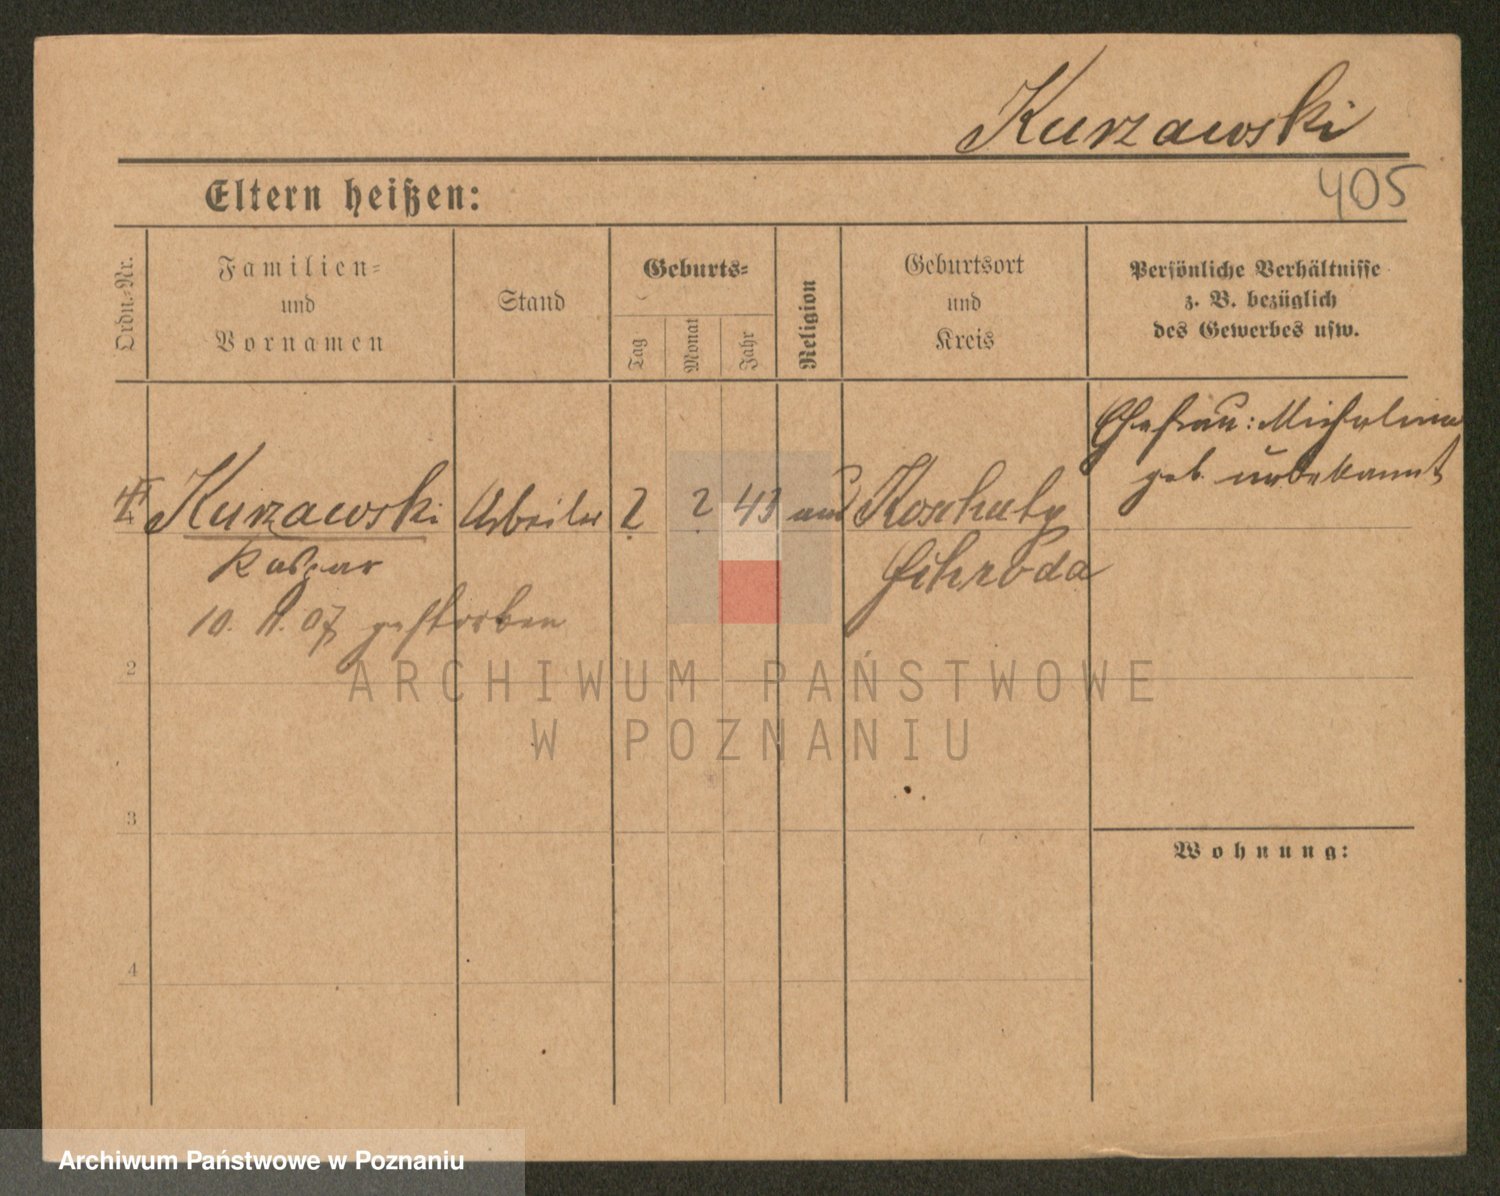 Kurzawski
405
Eltern heißen:
Ordn.-Nr.
Familien-
und
Vornamen
Stand
Geburts-
Tag
Monat
Jahr
Religion
Geburtsort
und
Kreis
Persönliche Verhältnisse
z. B. bezüglich
des Gewerbes usw.
Ehefrau: Michalina
geb. unbekannt
Kurzawski Arbeiter 2 2 43
Schroda
10. 07 gestorben
2
3
4
Wohnung:
ARCHIWUM PAŃSTWOWE
W POZNANIU
Archiwum Państwowe w Poznaniu